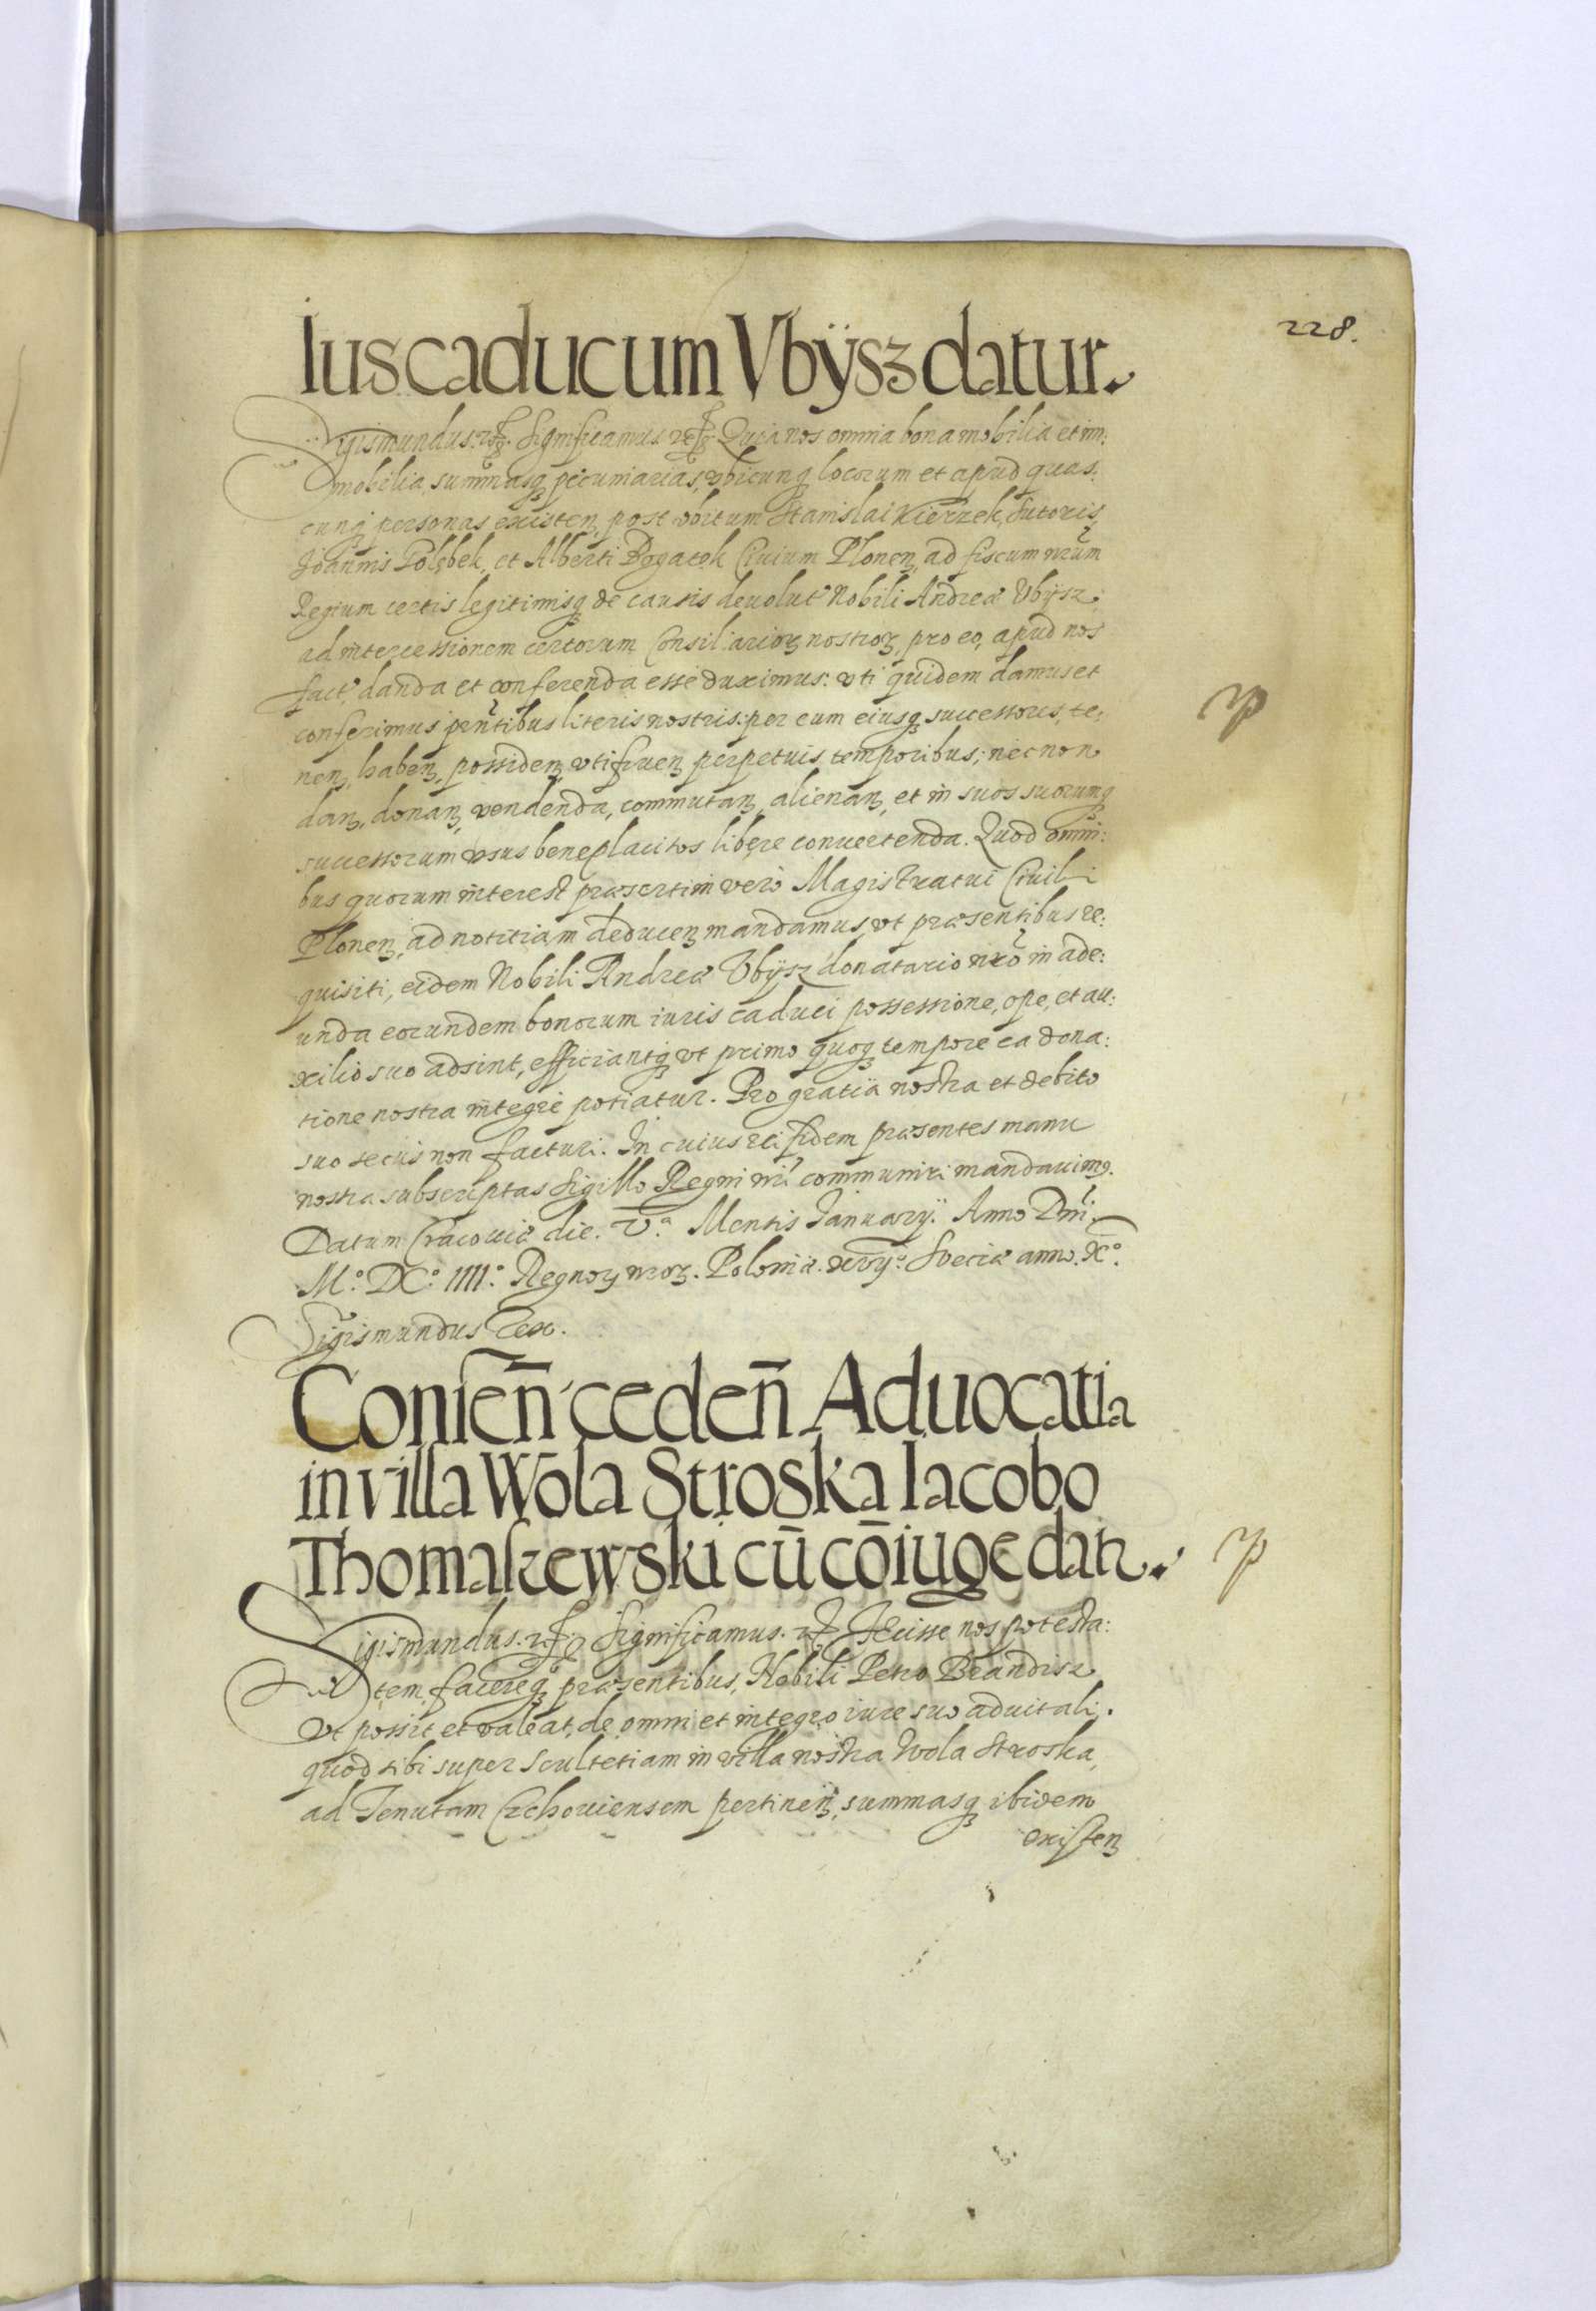 228.
Ius caducum Vbÿsz datur.
Sigismundus. Significamus Quia nos omnia bona mobilia et im:
mobilia, summasq pecuniarias, vbicunq locorum et apud quas:
cunq personas existen, post obitum Stanislai Kierzek, Sutoris,
Joannis Polębek, et Alberti Rogatek Ciuium Plonen, ad fiscum nrum
Regium certis legitimisq de causis deuolut Nobili Andreæ Vbÿsz,
ad intercessionem certorum Consiliarioꝝ nostroꝝ, pro eo, apud nos
fact, danda et conferenda esse duximus: vti quidem damus et
conferimus pentibus literis nostris: per eum eiusq successores, te:
nen, haben, possiden, vtifruen perpetuis temporibus; nec non
dan, donan, vendenda, commutan, alienan, et in suos suorumq
successorum vsus beneplacitos libere conuertenda. Quod omni:
bus quorum interest præsertim vero Magistratui Ciuili
Plonen, ad notitiam deducen mandamus, vt præsentibus re:
quisiti, eidem Nobili Andreæ Vbÿsz donatario nro in ade:
unda eorundem bonorum iuris caduci possessione, ope, et au:
xilio suo adsint, efficiantq vt primo quoq tempore ea dona:
tione nostra integre potiatur. Pro gratia nostra et debito
suo secus non facturi. In cuius rei fidem præsentes manu
nostra subscriptas Sigillo Regni nri communiri mandauimꝰ.
Datum Cracouiæ die. V.ª Mensis January. Anno Dni.
M.º DC.º IIII.º Regnoꝝ nroꝝ. Poloniæ. xvij.º Sueciæ anno. X.º
Sigismundus Rex.
Consen̄ ceden̄ Aduocatia
in villa Wola Stroska Iacobo
Thomaszewski cū cōiuge datr.
Sigismundus. Significamus. Fecisse nos potesta:
tem, facereq præsentibus, Nobili Petro Brandisz
vt possit et valeat, de omni et integro iure suo aduitali.
quod sibi super Scultetiam in villa nostra Wola Stroska,
ad Tenutam Czchouiensem pertinen, summasq ibidem
existen